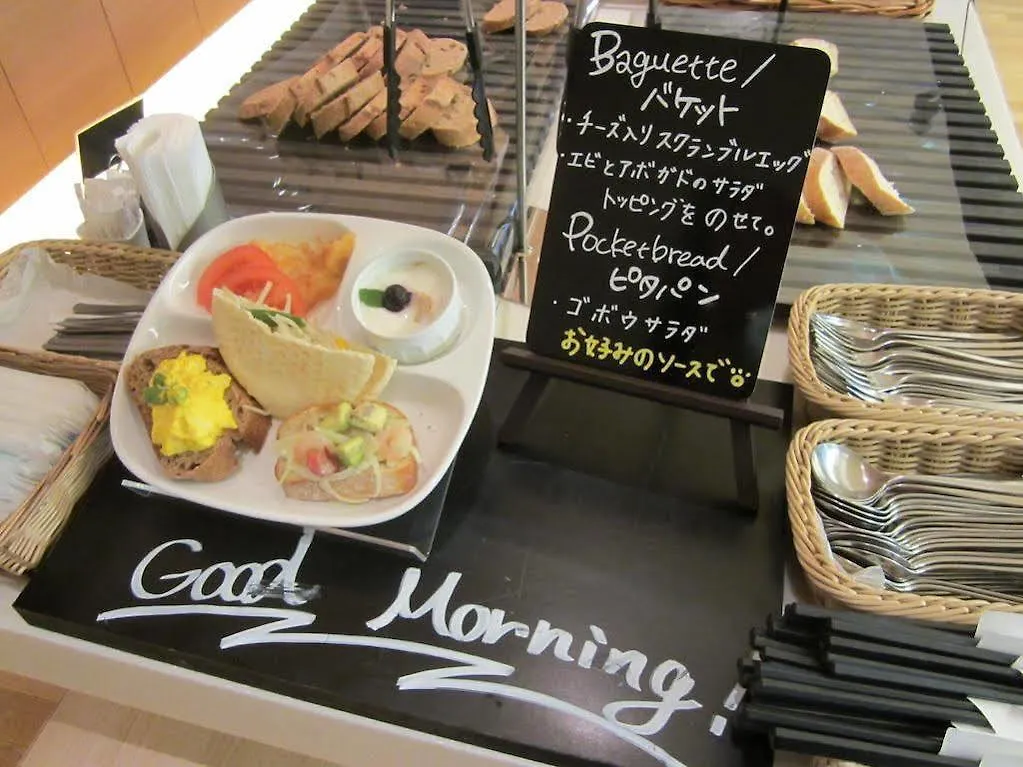 Baguette/
バケット
・チーズ入りスクランブルエッグ
・エビとアボガドのサラダ
トッピングをのせて。
Pocketbread/
ピタパン
・ゴボウサラダ
お好みのソースで
Good Morning!